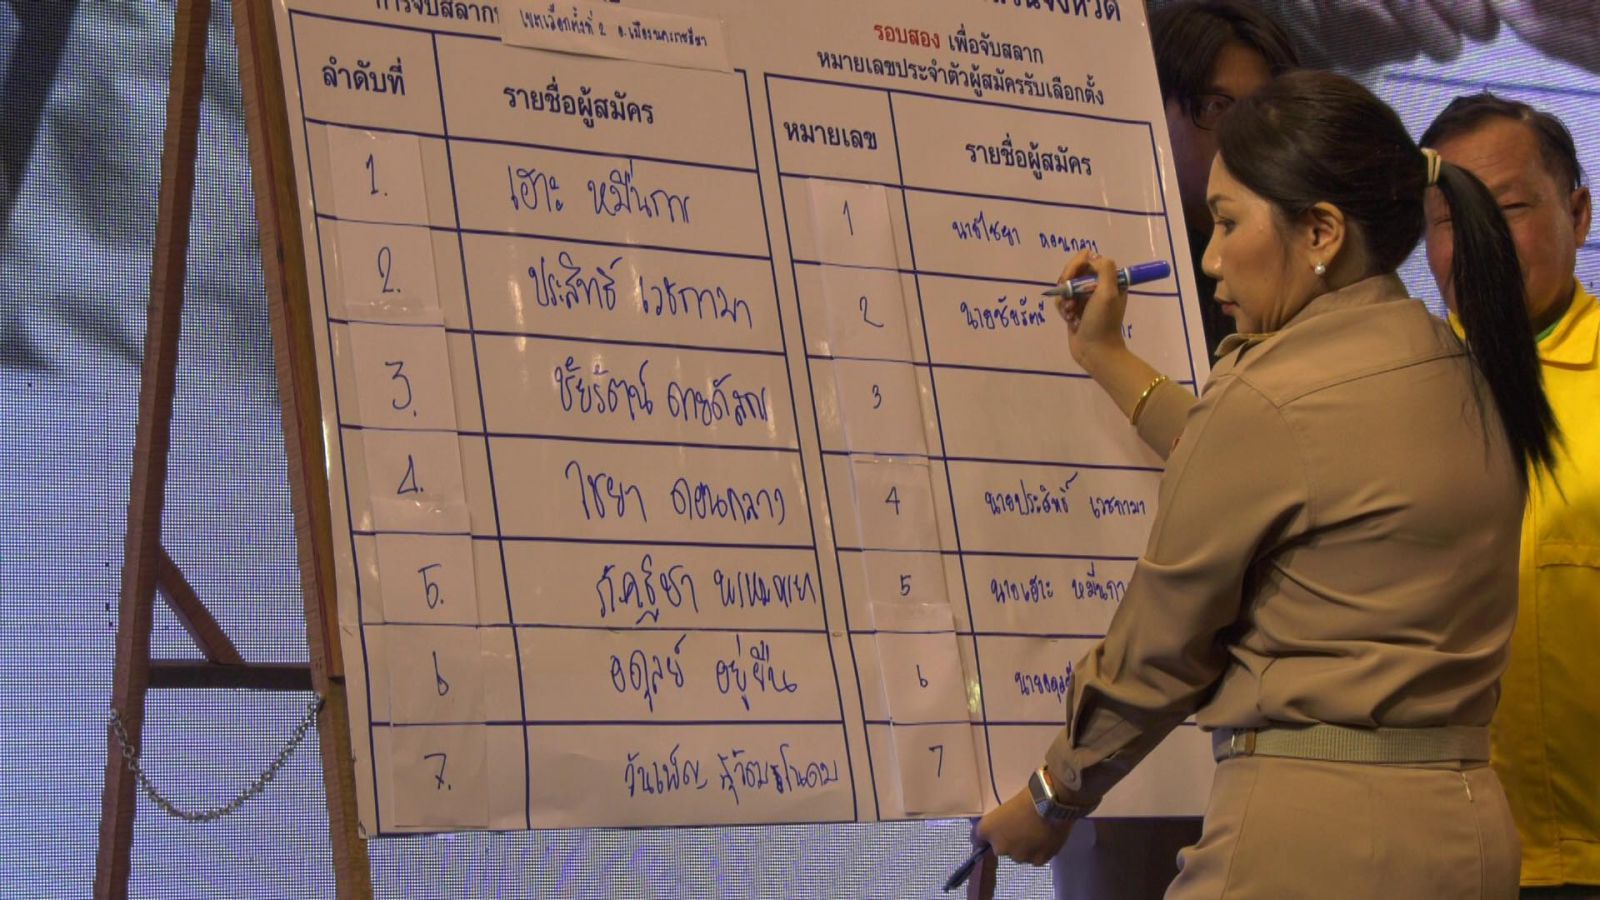 การจับสลาก
เขตเลือกตั้งที่ 2 อ.เมืองนครราชสีมา
ลำดับที่
รายชื่อผู้สมัคร
1.
เฮาะ หมื่นการ
2.
ประสิทธิ์ เวชกามา
3.
ชัยรัตน์
4.
ไชยา ดอนกลาง
5.
6
อดุลย์ อยู่ยืน
7.
วันเพ็ญ
จังหวัด
รอบสอง เพื่อจับสลาก
หมายเลขประจำตัวผู้สมัครรับเลือกตั้ง
หมายเลข
รายชื่อผู้สมัคร
1
นายไชยา ดอนกลาง
2
นายชัยรัตน์
3
4
นายประสิทธิ์ เวชกามา
5
นายเฮาะ หมื่นกา
6
7